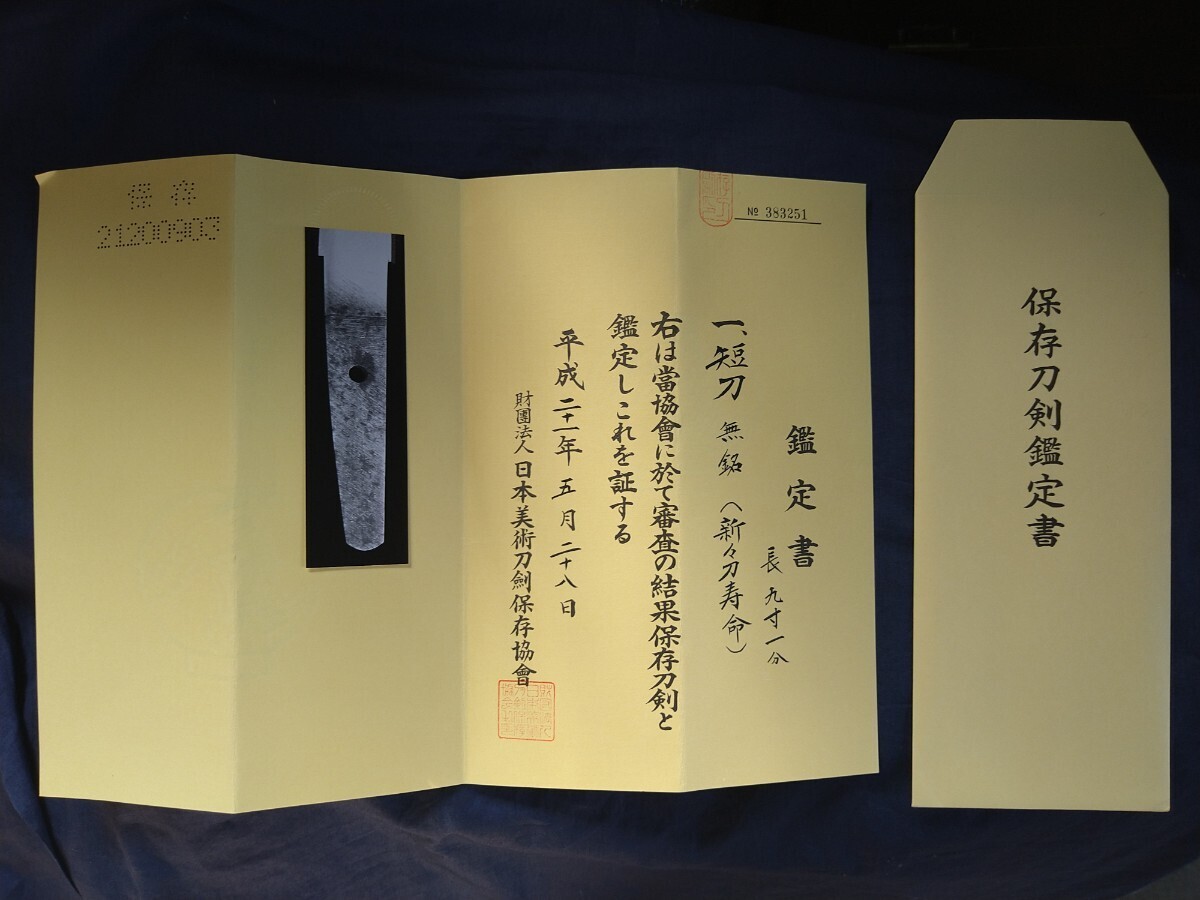 保存刀剣鑑定書
№ 383251
鑑定書
一、短刀 無銘(新々刀寿命)
長 九寸一分
右は當協會に於て審査の結果保存刀剣と
鑑定しこれを証する
平成二十一年 五月 二十八日
財團法人 日本美術刀劍保存協會
保存
21200903